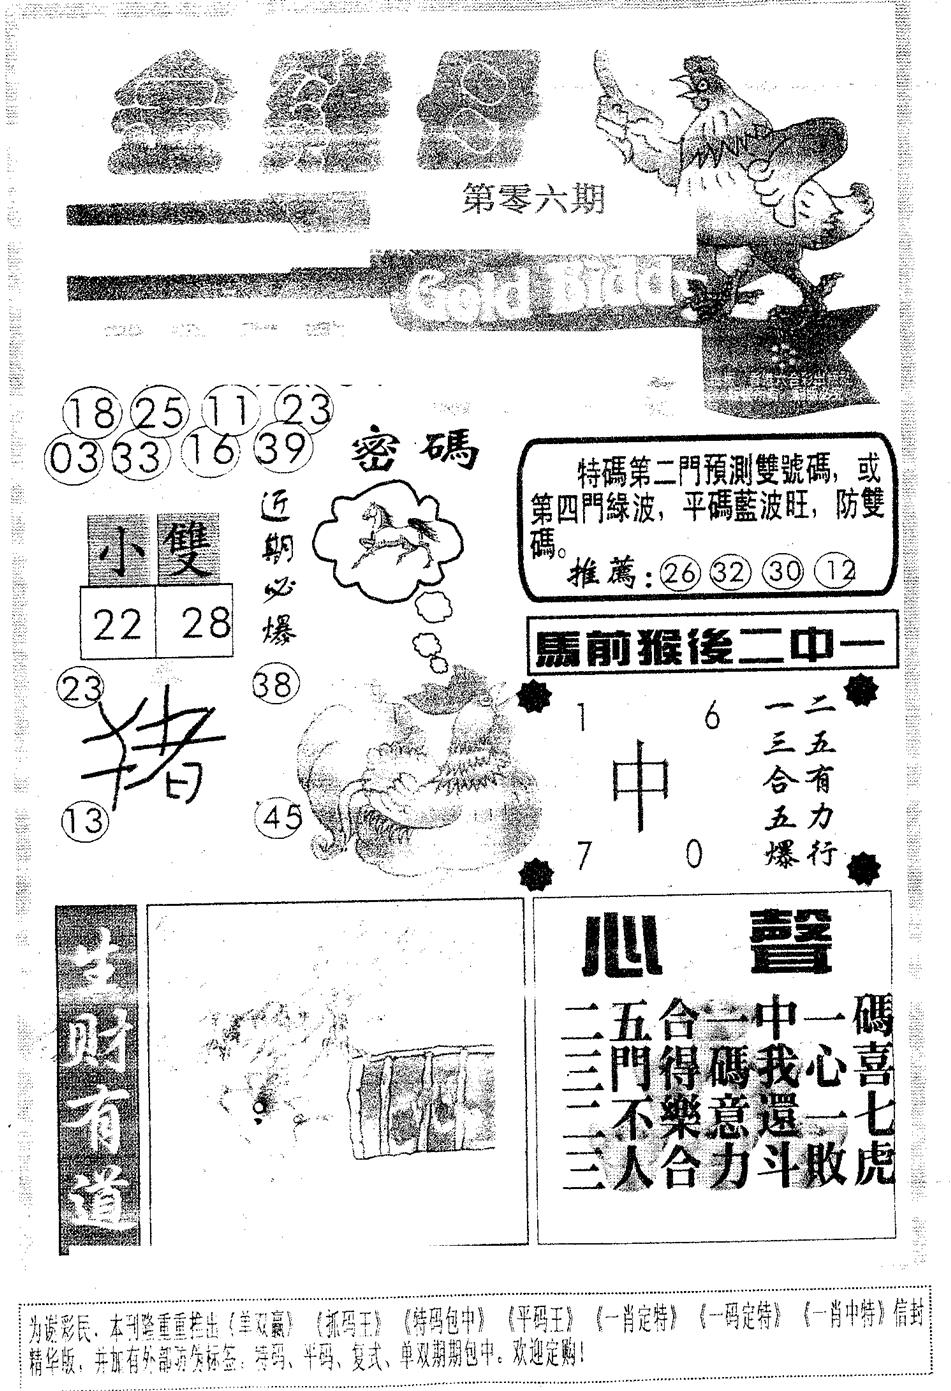 第零六期
Gold Bidd
18 25 11 23
03 33 16 39
密碼
近期必爆
小 雙
22 28
23 38
猪
13 45
特碼第二門預測雙號碼，或
第四門綠波，平碼藍波旺，防雙
碼。
推薦：26 32 30 12
馬前猴後二中一
1 6
中
7 0
二五有力行
一三合五爆
生财有道
心聲
二五合一中一碼
三門得碼我心喜
二不樂意還一七
三人合力斗敗虎
为谢彩民，本刊隆重重推出《单双赢》《抓码王》《特码包中》《平码王》《一肖定特》《一码定特》《一肖中特》信封
精华版，并加有外部防伪标签，特码、平码、复式、单双期期包中。欢迎定购！